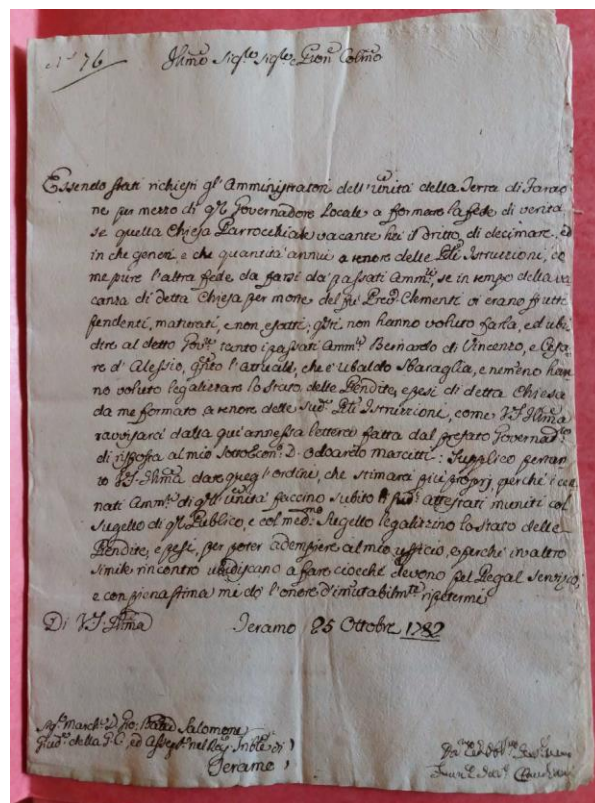 N.° 76
Illmo Sig.re Sig.re e Pron Colmo
Essendo stati richiesti gl'Amministratori dell'Unità della Terra di Farao
ne per mezzo di q.l Governadore Locale a formare la fede di verità
se quella Chiesa Parrocchiale vacante hà il dritto di decimare, ed
in che generi, e che quantità annui a tenore delle Istruzioni, co
me pure l'altra fede da farsi da' passati Amm.ri, se in tempo della va
canza di detta Chiesa per morte del fù Clementi vi erano frutti
pendenti, maturati, e non esatti; q.sti non hanno voluto farla, ed ubi
dire al detto Gov.re tanto i passati Amm.ri Bernardo di Vincenzo, e Cesa
re d'Alessio, q.to l'attuale, che è Ubaldo Sbaraglia, e nemeno han
no voluto legalizzare lo stato delle Rendite, e pesi di detta Chiesa
da me formato a tenore delle sud.e Istruzzioni, come V.S. Illma
ravvisarà dalla qui annessa lettera fatta dal prefato Governad.re
di risposta al mio D. Odoardo Marcetti: Supplico pertan
to V.S. Illma dare quegl'ordini, che stimarà più proprj, perche i cen
nati Amm.ri di q.ll'unità faccino subito attestati muniti col
sugello di q.l Publico, e col med.mo sugello legalizzino lo stato delle
Rendite, e pesi, per poter adempiere al mio ufficio, e perche in altro
simile rincontro ubidiscano a fare ciocchè devono pel Regal servizio,
e con piena stima mi dò l'onore d'imutabilm.te ripetermi
Di V.S. Illma Teramo 25 Ottobre 1782
Sig.r March.e D. Gio: Salomone
Giud.e della G.C. ed nel di
Teramo